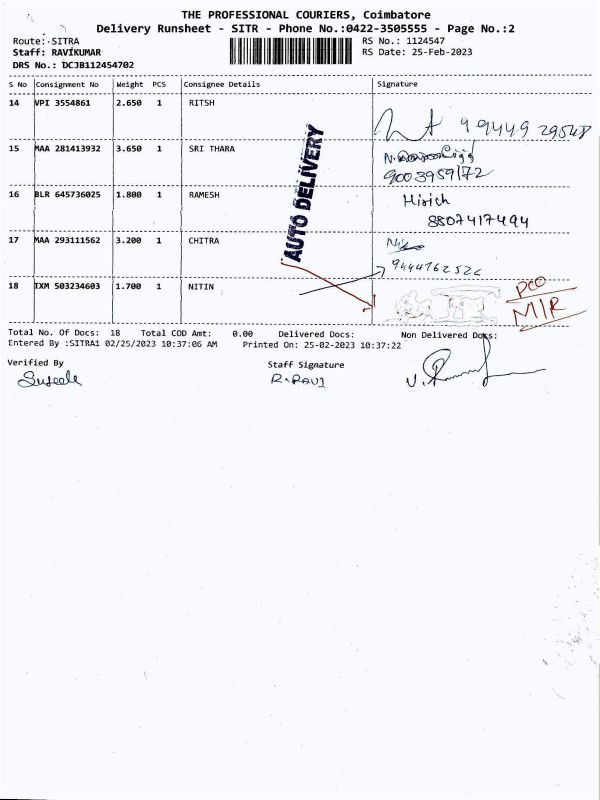 THE PROFESSIONAL COURIERS, Coimbatore
Delivery Runsheet - SITR - Phone No.:0422-3505555 - Page No.:2
Route: SITRA
RS No.: 1124547
Staff: RAVIKUMAR
RS Date: 25-Feb-2023
DRS No.: DCJB112454702
S No Consignment No Weight PCS Consignee Details Signature
14 VPI 3554861 2.650 1 RITSH
99449 29548
15 MAA 281413932 3.650 1 SRI THARA
9003959172
16 BLR 645736025 1.800 1 RAMESH
8807417494
AUTO DELIVERY
17 MAA 293111562 3.200 1 CHITRA
9444762526
18 IXM 503234603 1.700 1 NITIN
PCO
MIR
Total No. Of Docs: 18 Total COD Amt: 0.00 Delivered Docs: Non Delivered Docs:
Entered By :SITRA1 02/25/2023 10:37:06 AM Printed On: 25-02-2023 10:37:22
Verified By
Staff Signature
R. RAVI